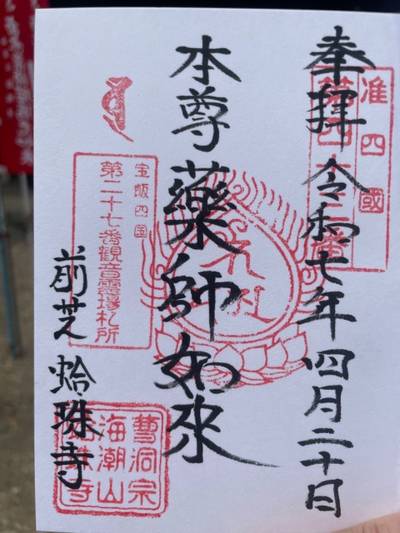 奉拝 令和七年四月二十日
准四國
本尊薬師如來
宝飯四国
第二十七番観音霊場札所
前芝 蛤珠寺
曹洞宗
海潮山
蛤珠寺